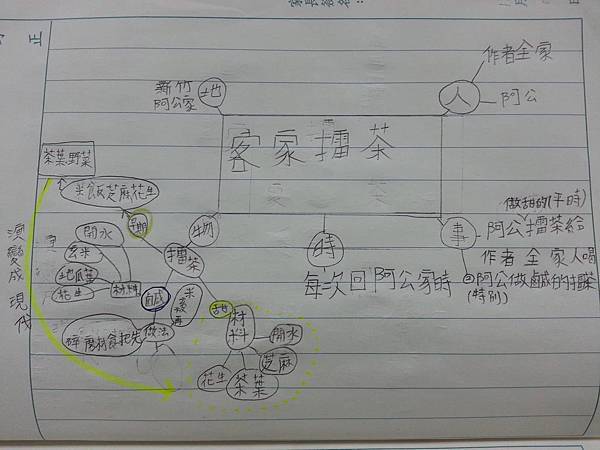 正
作者全家
人
阿公
新竹
阿公家
地
客家擂茶
茶葉野菜
米飯芝麻花生
早期
物
時
事
做甜的(平時)
阿公擂茶給
作者全家人喝
每次回阿公家時
②阿公做鹹的擂茶
(特別)
開水
玄米
地瓜葉
花生
材料
擂茶
鹹
做法
甜
材
料
開水
芝麻
花生
茶葉
演變成現代